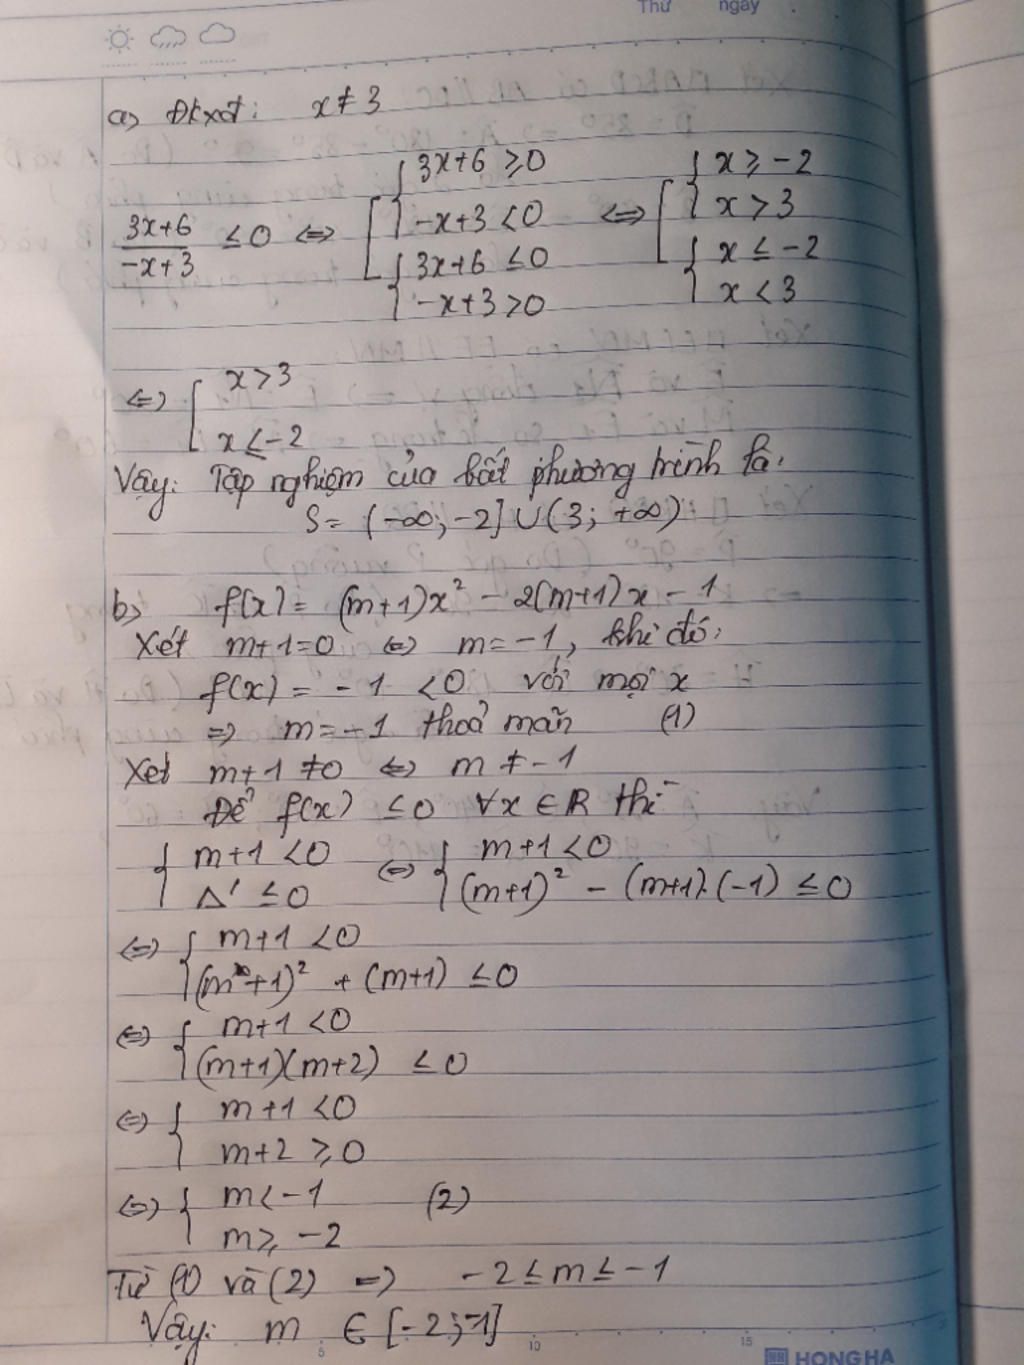 Thứ ngày
a) Đkxđ: x ≠ 3
(3x+6)/(-x+3) ≤ 0 ⇔ [ { 3x+6 ≥ 0 ; -x+3 < 0 ; { 3x+6 ≤ 0 ; -x+3 > 0 ⇔ [ { x ≥ -2 ; x > 3 ; { x ≤ -2 ; x < 3
⇔ [ x > 3
x ≤ -2
Vậy: Tập nghiệm của bất phương trình là:
S = (-∞; -2] ∪ (3; +∞)
b) f(x) = (m+1)x² - 2(m+1)x - 1
Xét m+1=0 ⇔ m = -1, khi đó:
f(x) = -1 < 0 với mọi x
⇒ m = -1 thoả mãn (1)
Xét m+1 ≠ 0 ⇔ m ≠ -1
Để f(x) ≤ 0 ∀x ∈ R thì
{ m+1 < 0 ; Δ' ≤ 0 ⇔ { m+1 < 0 ; (m+1)² - (m+1).(-1) ≤ 0
⇔ { m+1 < 0
(m+1)² + (m+1) ≤ 0
⇔ { m+1 < 0
(m+1)(m+2) ≤ 0
⇔ { m+1 < 0
m+2 ≥ 0
⇔ { m < -1 (2)
m ≥ -2
Từ (1) và (2) ⇒ -2 ≤ m ≤ -1
Vậy: m ∈ [-2; -1]
5 10 15
HONG HA